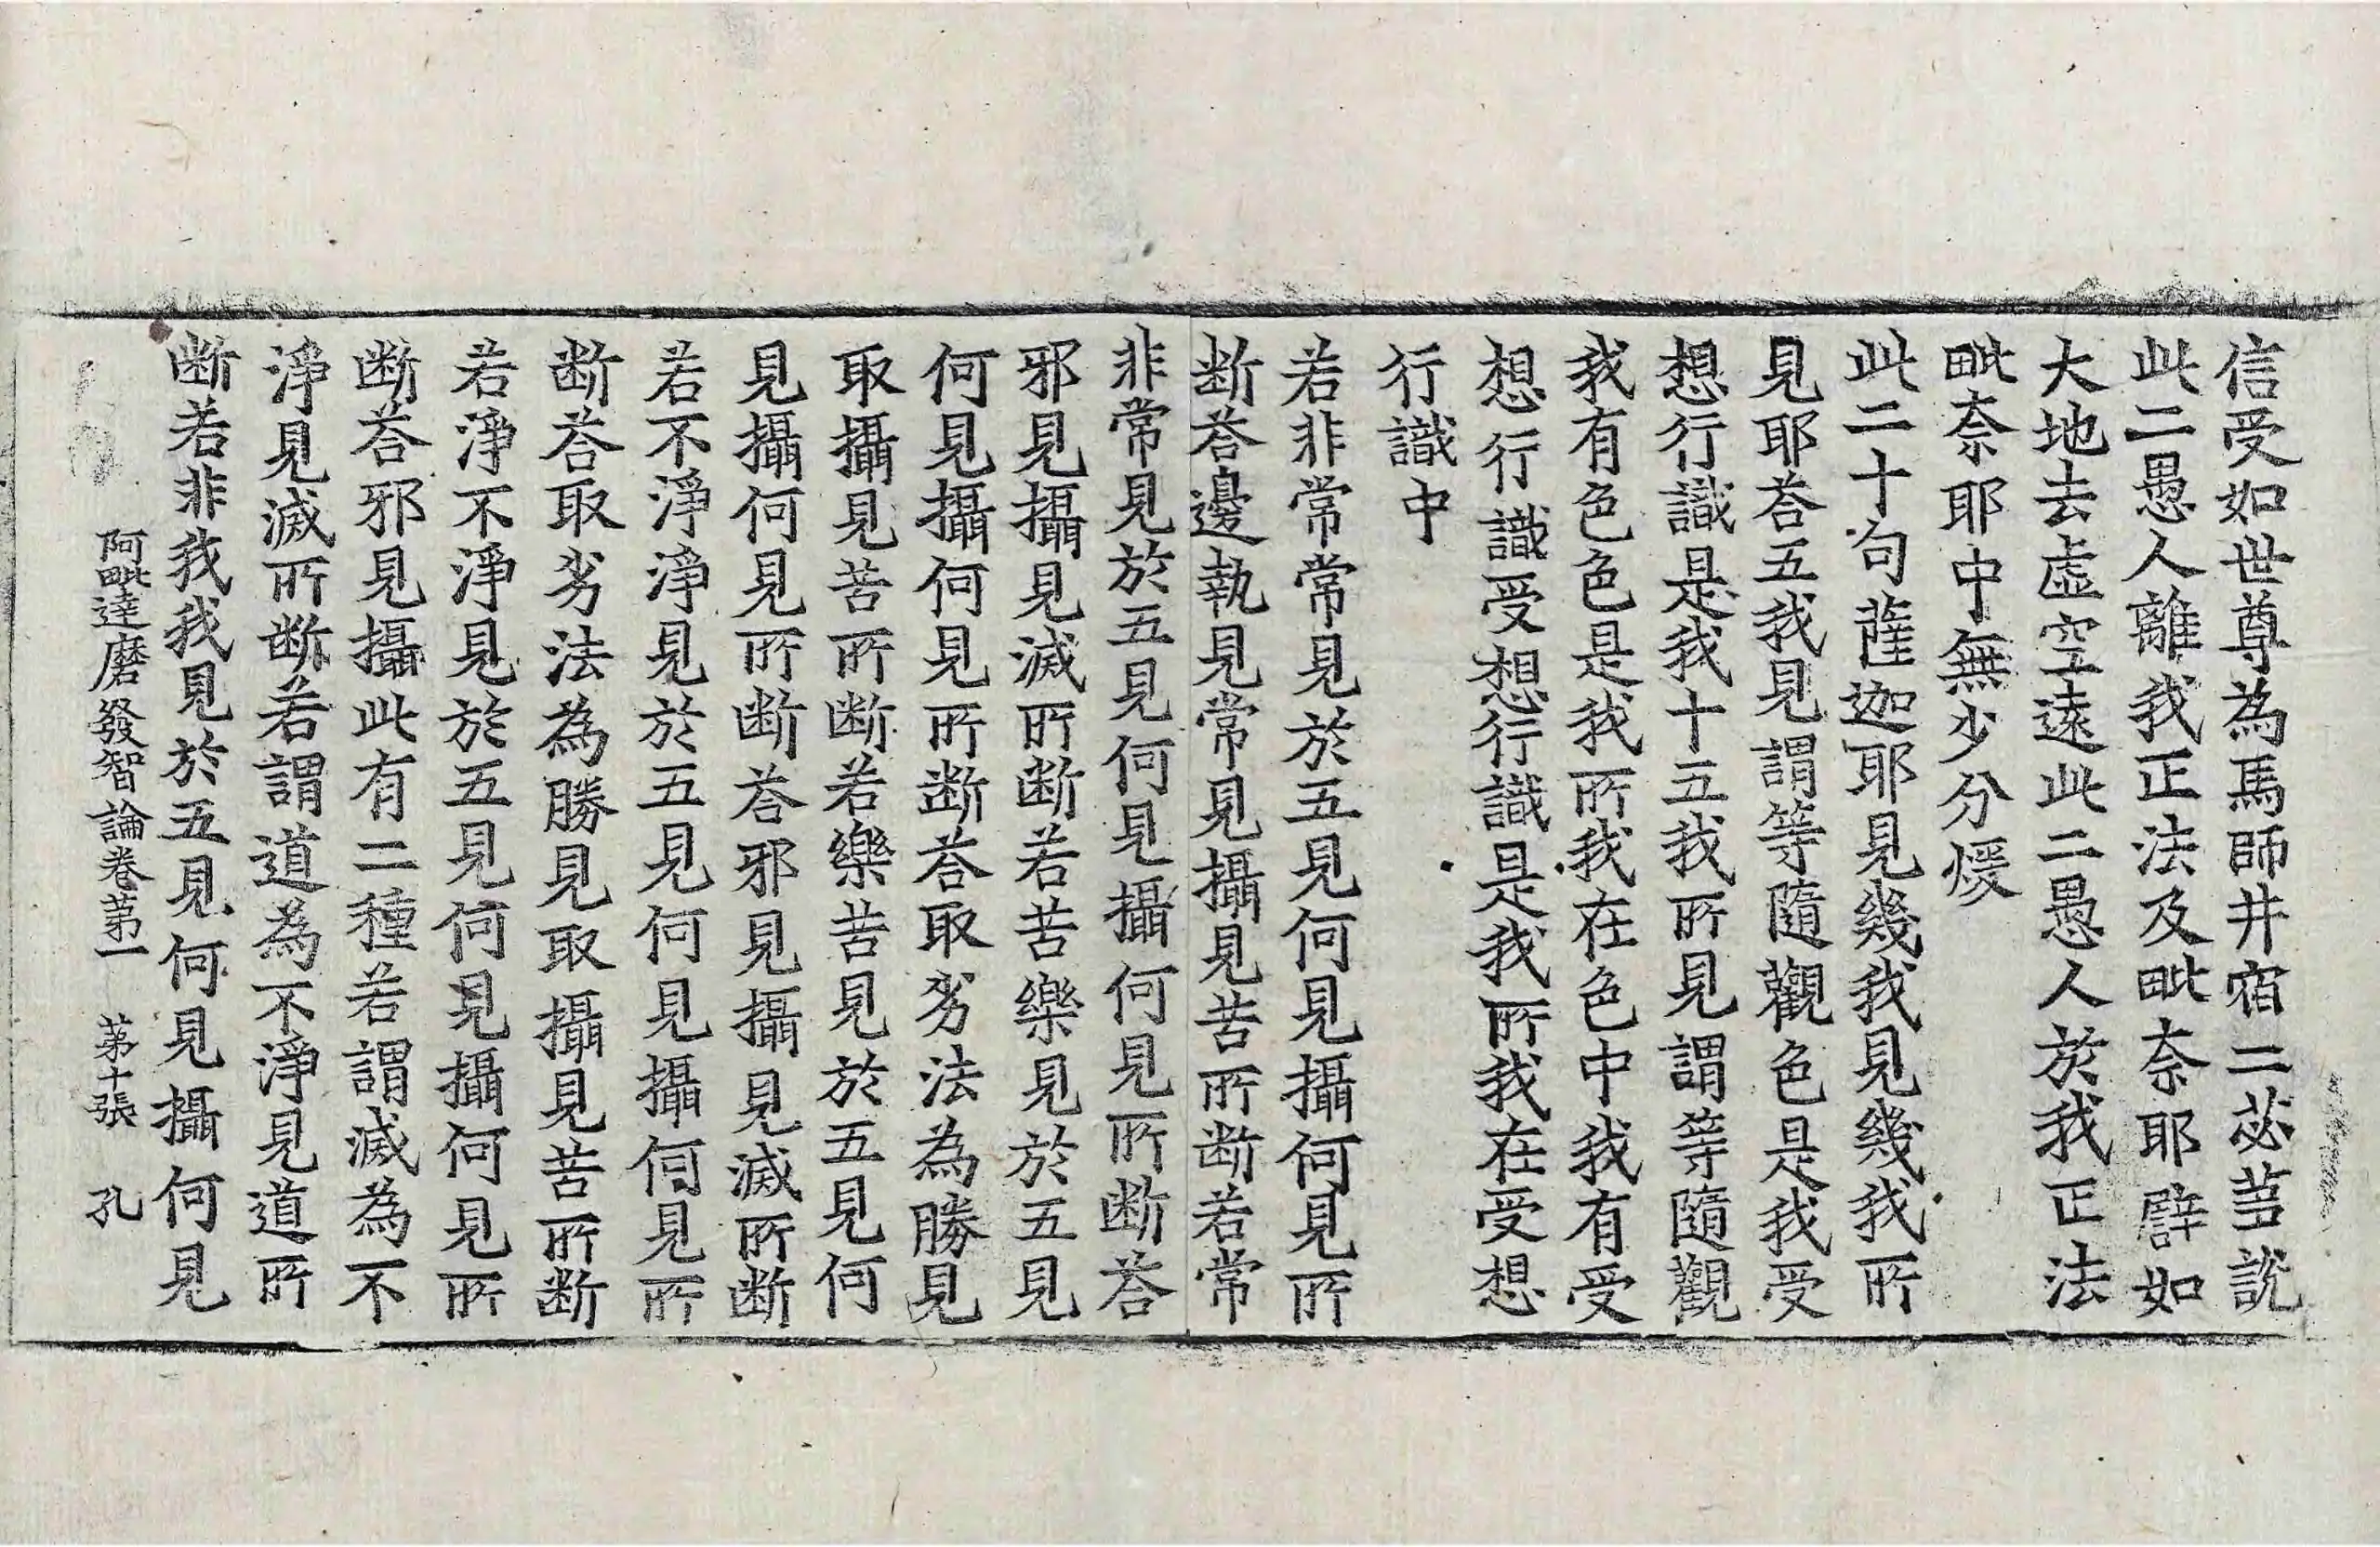 信受如世尊為馬師井宿二苾芻說
此二愚人離我正法及毗奈耶譬如
大地去虛空遠此二愚人於我正法
毗奈耶中無少分煖
此二十句薩迦耶見幾我見幾我所
見耶荅五我見謂等隨觀色是我受
想行識是我十五我所見謂等隨觀
我有色色是我所我在色中我有受
想行識受想行識是我所我在受想
行識中
若非常常見於五見何見攝何見所
断荅邊執見常見攝見苦所断若常
非常見於五見何見攝何見所断荅
邪見攝見滅所断若苦樂見於五見
何見攝何見所断荅取劣法為勝見
取攝見苦所断若樂苦見於五見何
見攝何見所断荅邪見攝見滅所断
若不淨淨見於五見何見攝何見所
断荅取劣法為勝見取攝見苦所断
若淨不淨見於五見何見攝何見所
断荅邪見攝此有二種若謂滅為不
淨見滅所断若謂道為不淨見道所
断若非我我見於五見何見攝何見
阿毗達磨發智論卷第一 第十張 孔